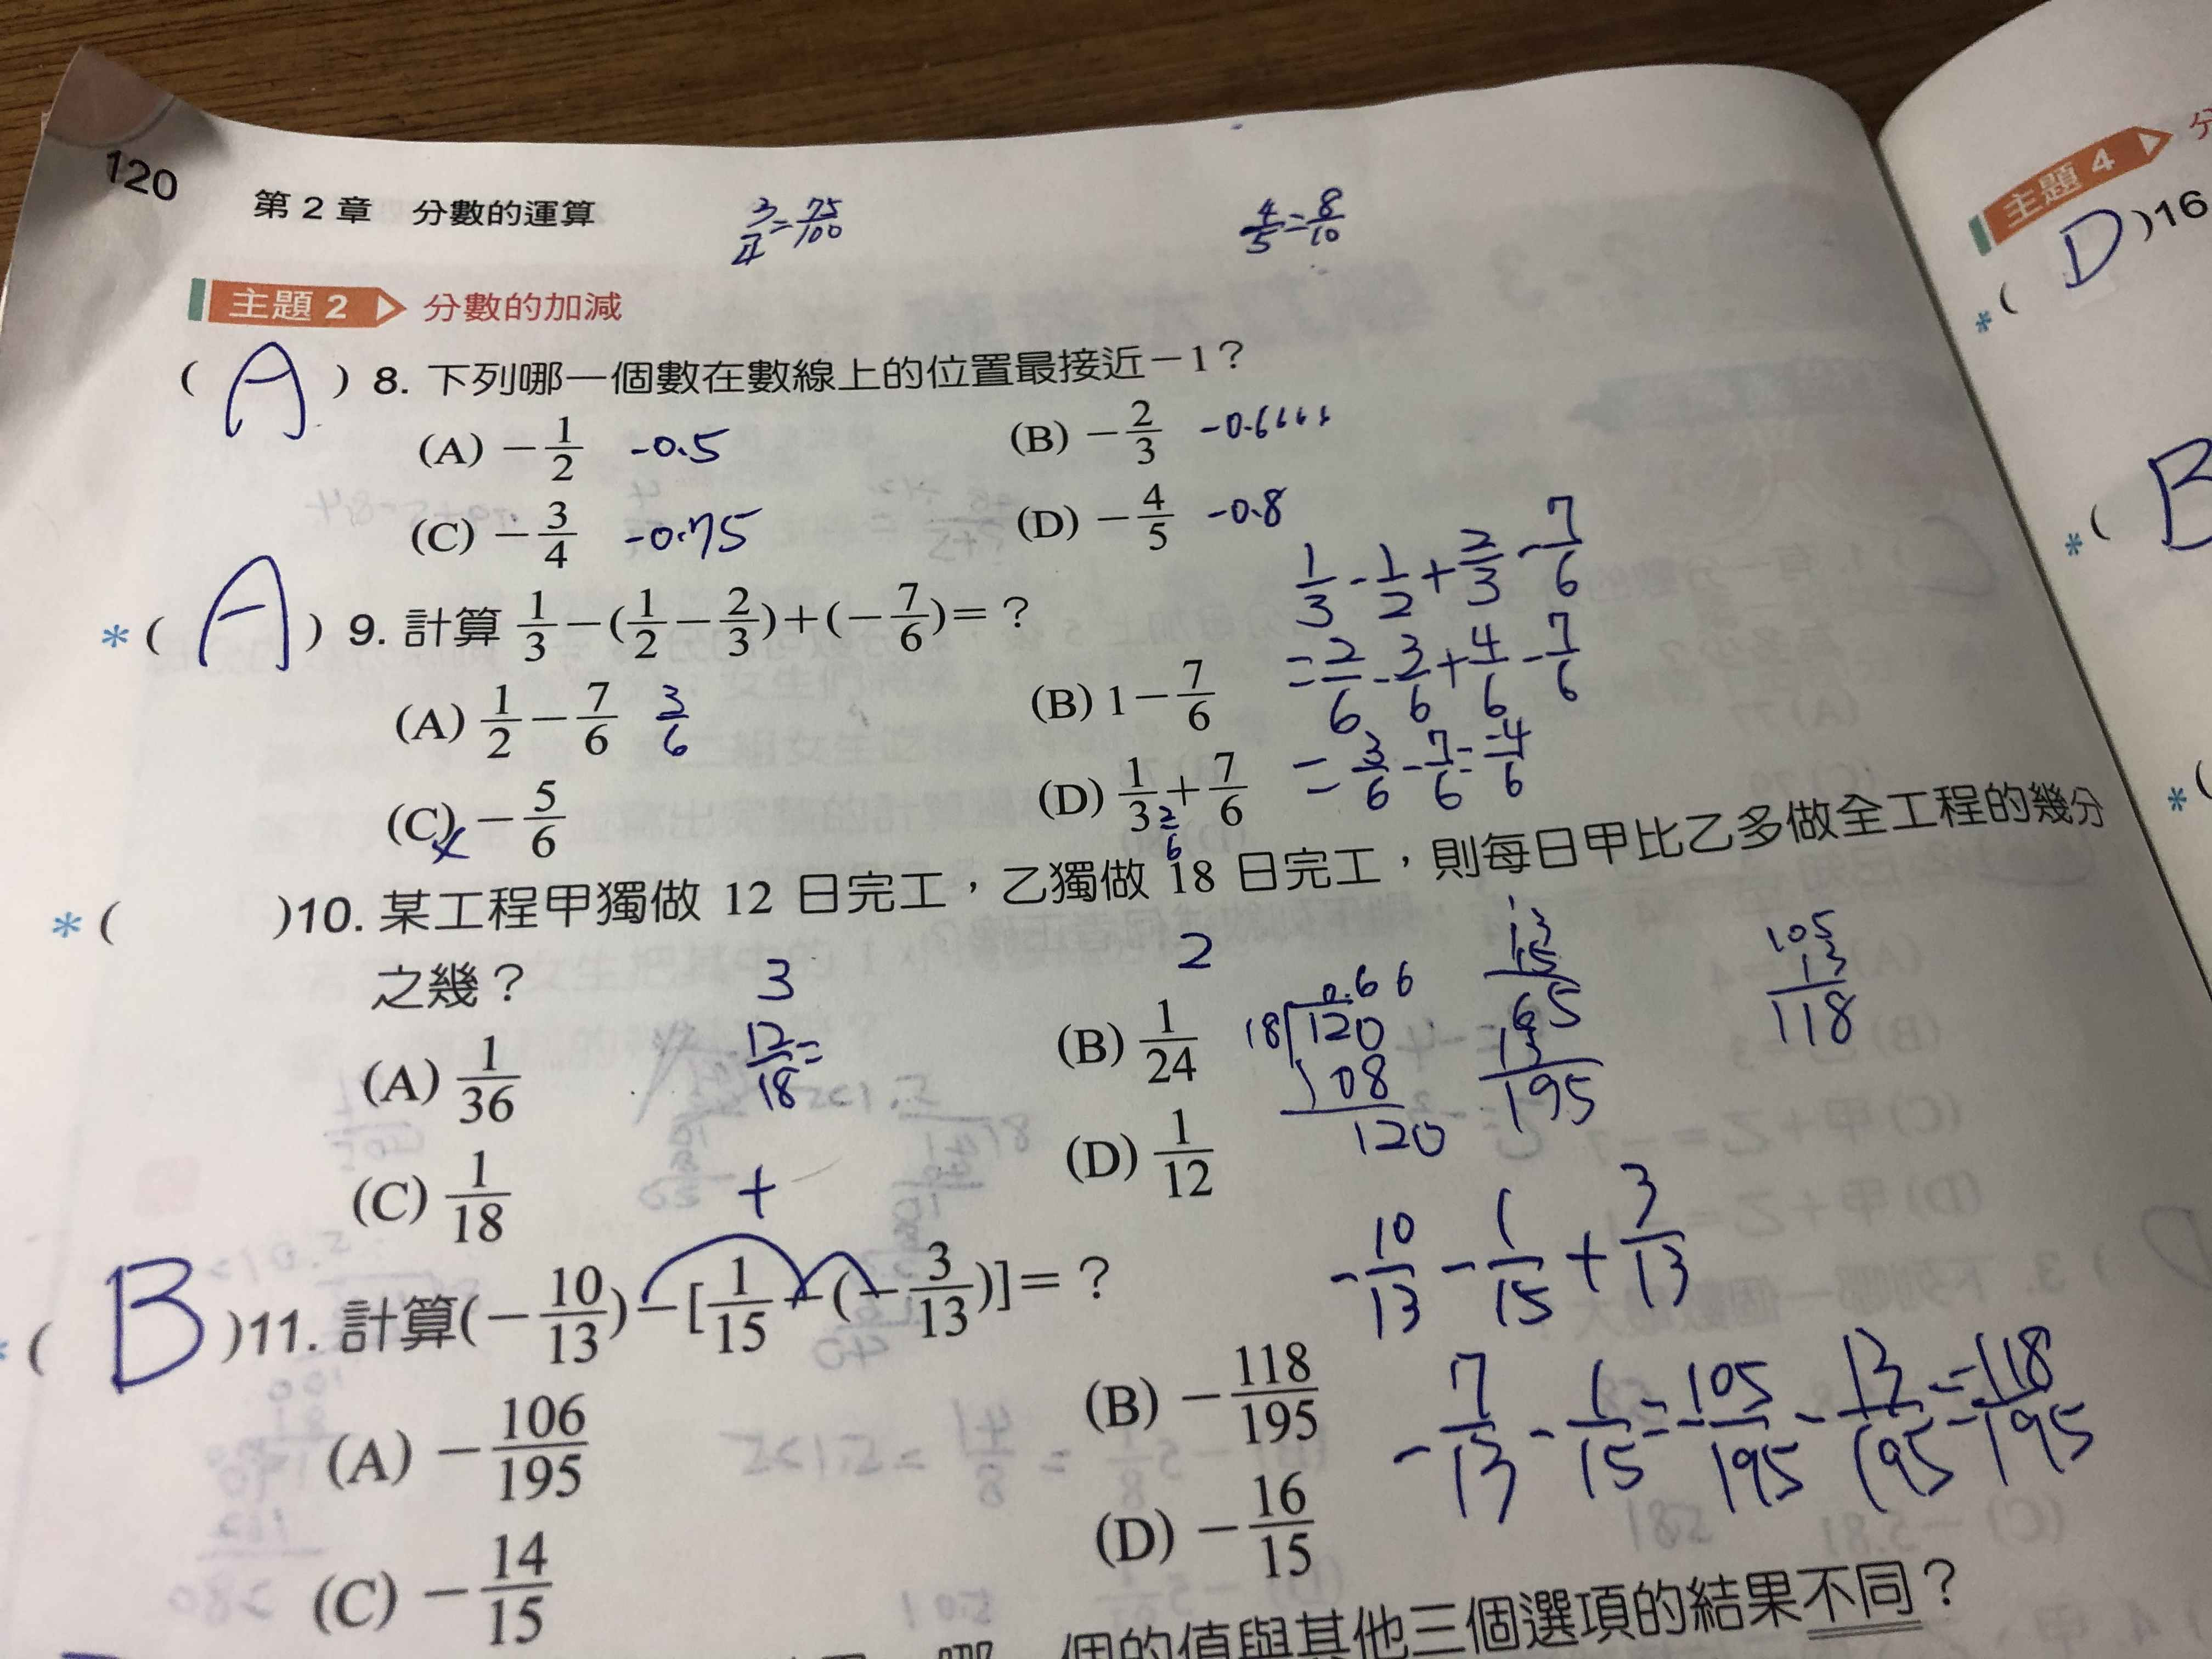 120
第 2 章 分數的運算
3/4 = 75/100
4/5 = 8/10
主題 2 分數的加減
( A ) 8. 下列哪一個數在數線上的位置最接近－1？
(A) －1/2 -0.5 (B) －2/3 -0.6666
(C) －3/4 -0.75 (D) －4/5 -0.8
* ( A ) 9. 計算 1/3－(1/2－2/3)＋(－7/6)＝？
(A) 1/2－7/6 3/6 (B) 1－7/6
(C) －5/6 (D) 1/3＋7/6
2/6
1/3 - 1/2 + 2/3 - 7/6
= 2/6 - 3/6 + 4/6 - 7/6
= 3/6 - 7/6 = -4/6
* ( )10. 某工程甲獨做 12 日完工，乙獨做 18 日完工，則每日甲比乙多做全工程的幾分
之幾？
3
2
12/18 =
(A) 1/36 (B) 1/24
(C) 1/18 (D) 1/12
0.66
18 120
108
120
1
13
15
65
13
195
105
13
118
+
( B )11. 計算(－10/13)－[1/15－(－3/13)]＝？
(A) －106/195 (B) －118/195
(C) －14/15 (D) －16/15
-10/13 - 1/15 + 3/13
-7/13 - 1/15 = -105/195 - 13/195 = -118/195
個的值與其他三個選項的結果不同？
主題 4
* ( D )16
* ( B
* (